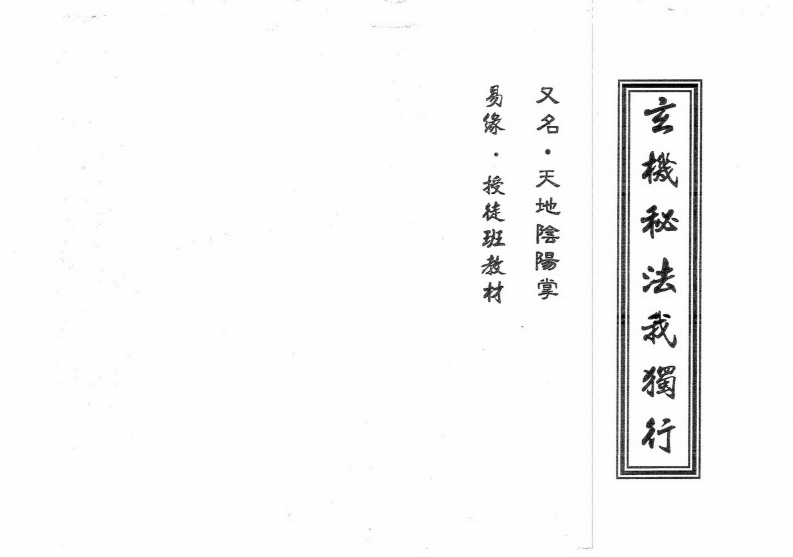 玄機秘法我獨行
又名·天地陰陽掌
易缘·授徒班教材